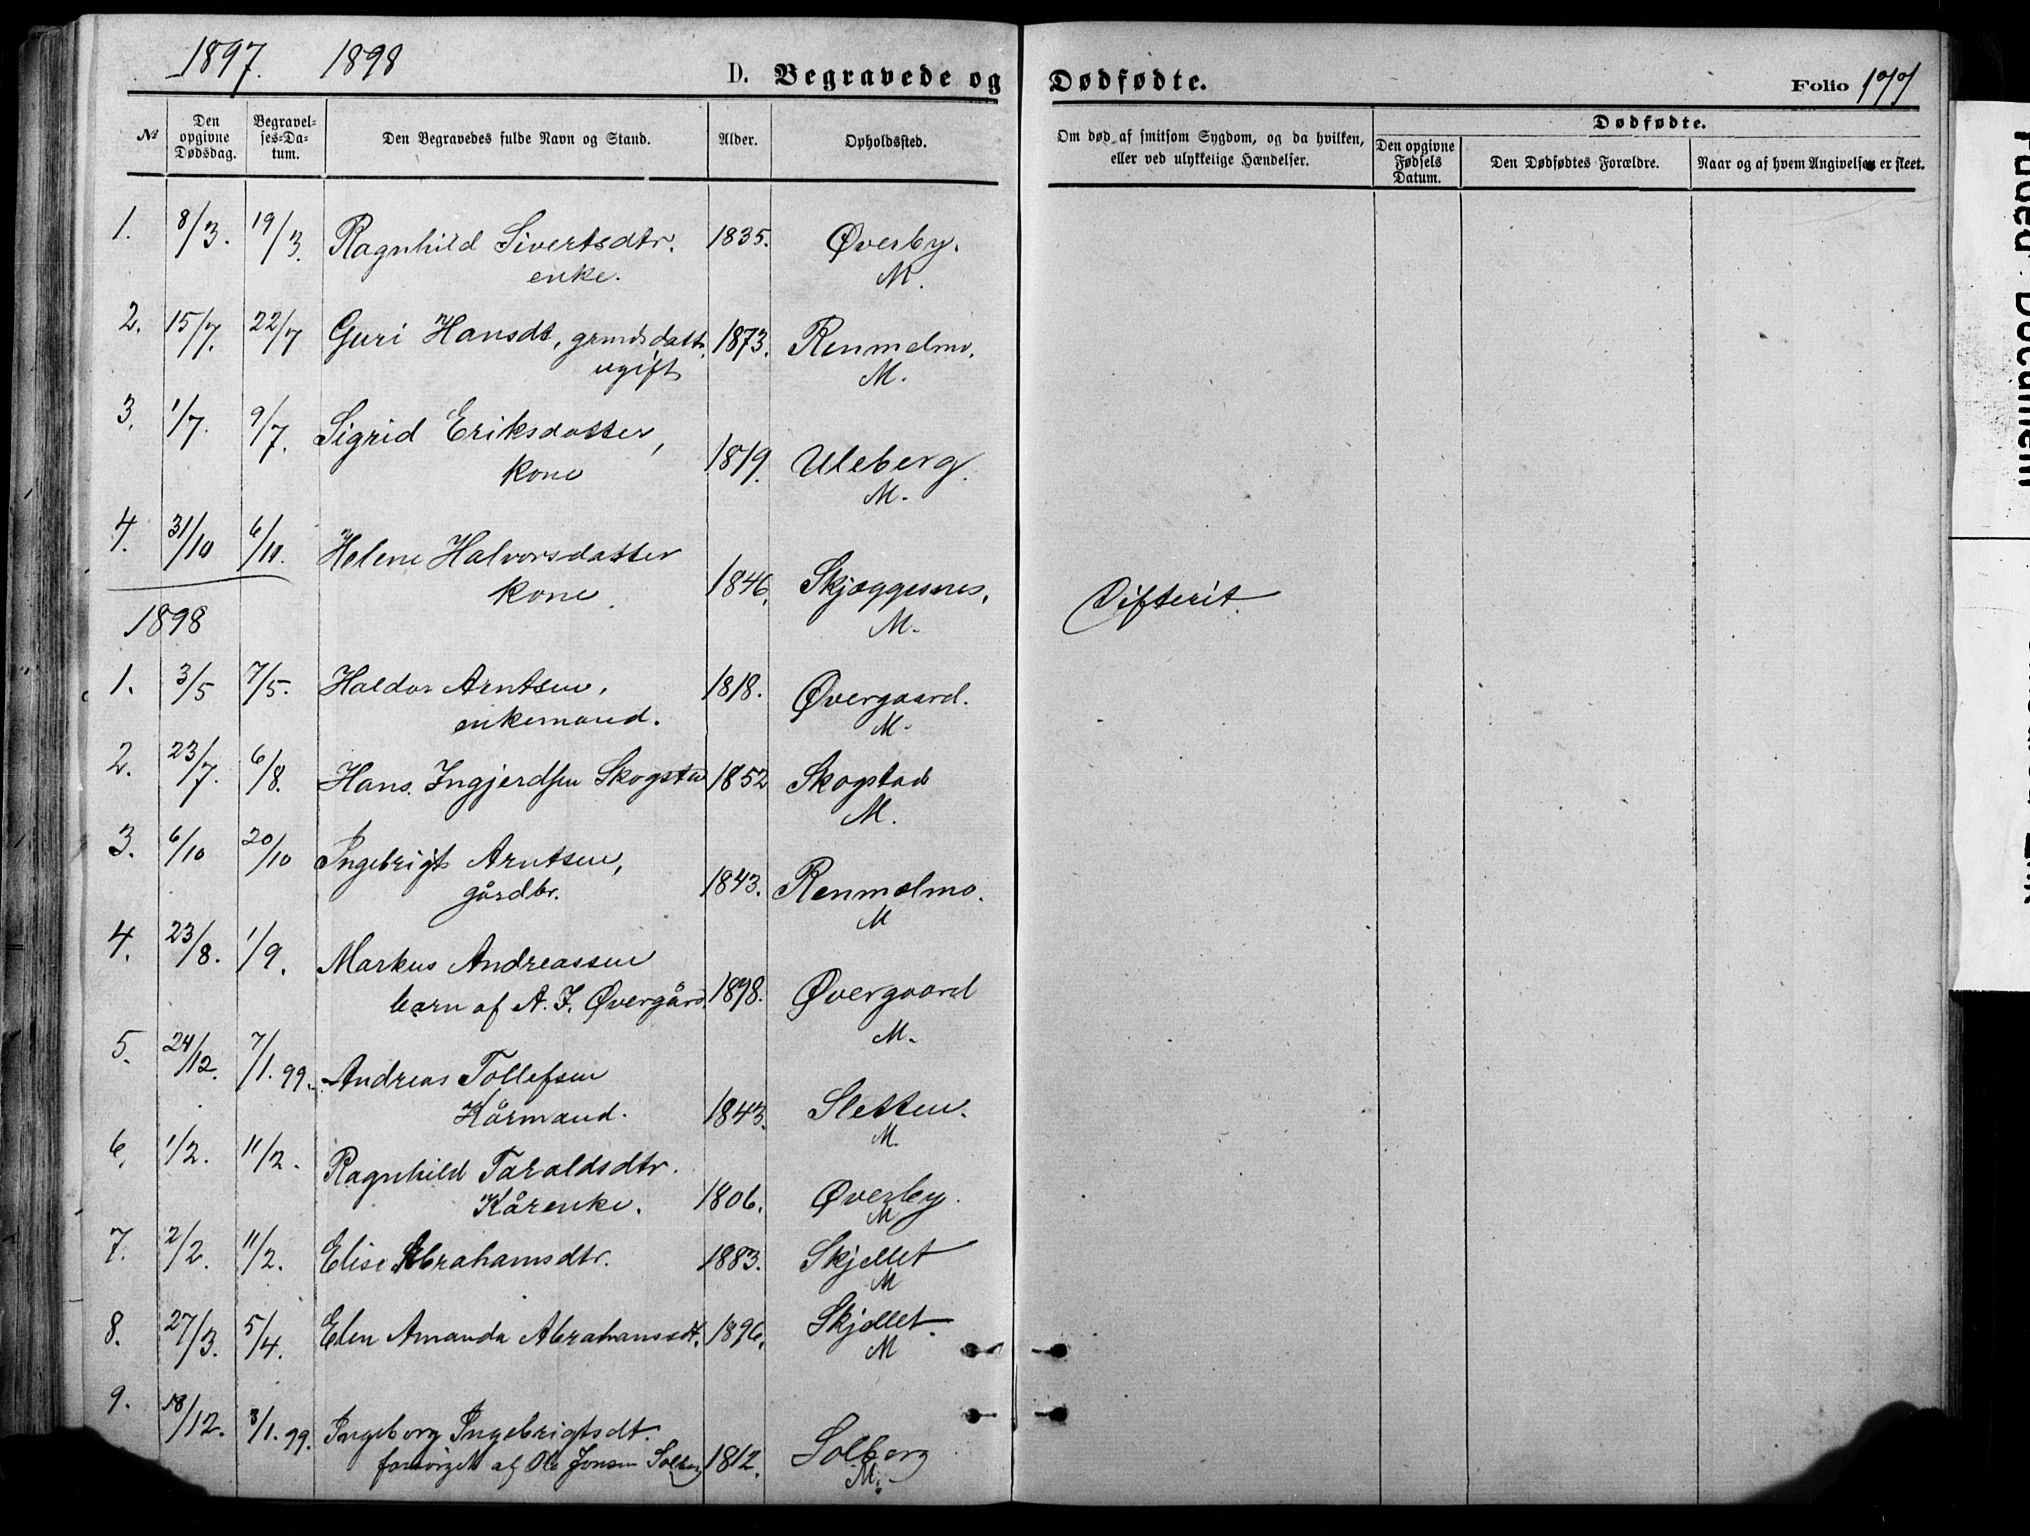 1897. 1898
D. Begravede og Dødfødte.
Folio 177
№
Den opgivne Dødsdag.
Begravelses-Datum.
Den Begravedes fulde Navn og Stand.
Alder.
Opholdssted.
Om død af smitsom Sygdom, og da hvilken, eller ved ulykkelige Hændelser.
Dødfødte.
Den opgivne Fødsels Datum.
Den Dødfødtes Forældre.
Naar og af hvem Angivelsen er skeet.
1. 8/3. 19/3. Ragnhild Sivertsdtr. 1835. Øverby.
enke. M.
2. 15/7. 22/7 Guri Hansdt, grmdsdatt. 1873. Renmelmo.
ugift M.
3. 1/7. 9/7. Sigrid Eriksdatter, 1819. Uleberg.
kone M.
4. 31/10 6/11. Helene Halvorsdatter
kone. 1846. Skjæggesnes. Difterit.
M.
1898
1. 3/5 7/5. Haldor Arntsen, 1818. Øvergaard.
enkemand. M.
2. 23/7. 6/8. Hans Ingjerdsen Skogstad 1852 Skogstad
M.
3. 6/10 20/10 Ingebrigt Arntsen,
gårdbr. 1843. Renmælmo.
M
4. 23/8. 1/9. Markus Andreassen
barn af A. J. Øvergård. 1898. Øvergaard
M.
5. 24/12. 7/1. 99. Andreas Tollefsen
Kårmand. 1843. Sletten.
M.
6. 1/2. 11/2. Ragnhild Taraldsdtr.
Kårenke. 1806. Øverby.
M
7. 2/2. 11/2. Elise Abrahamsdtr. 1883. Skjellet
M
8. 27/3. 5/4. Elen Amanda Abrahamsdt. 1896. Skjellet.
M
9. 18/12. 3/1. 99. Ingeborg Ingebrigtsdt.
forsørget af Ole Jonsen Solberg 1812. Solberg
M.